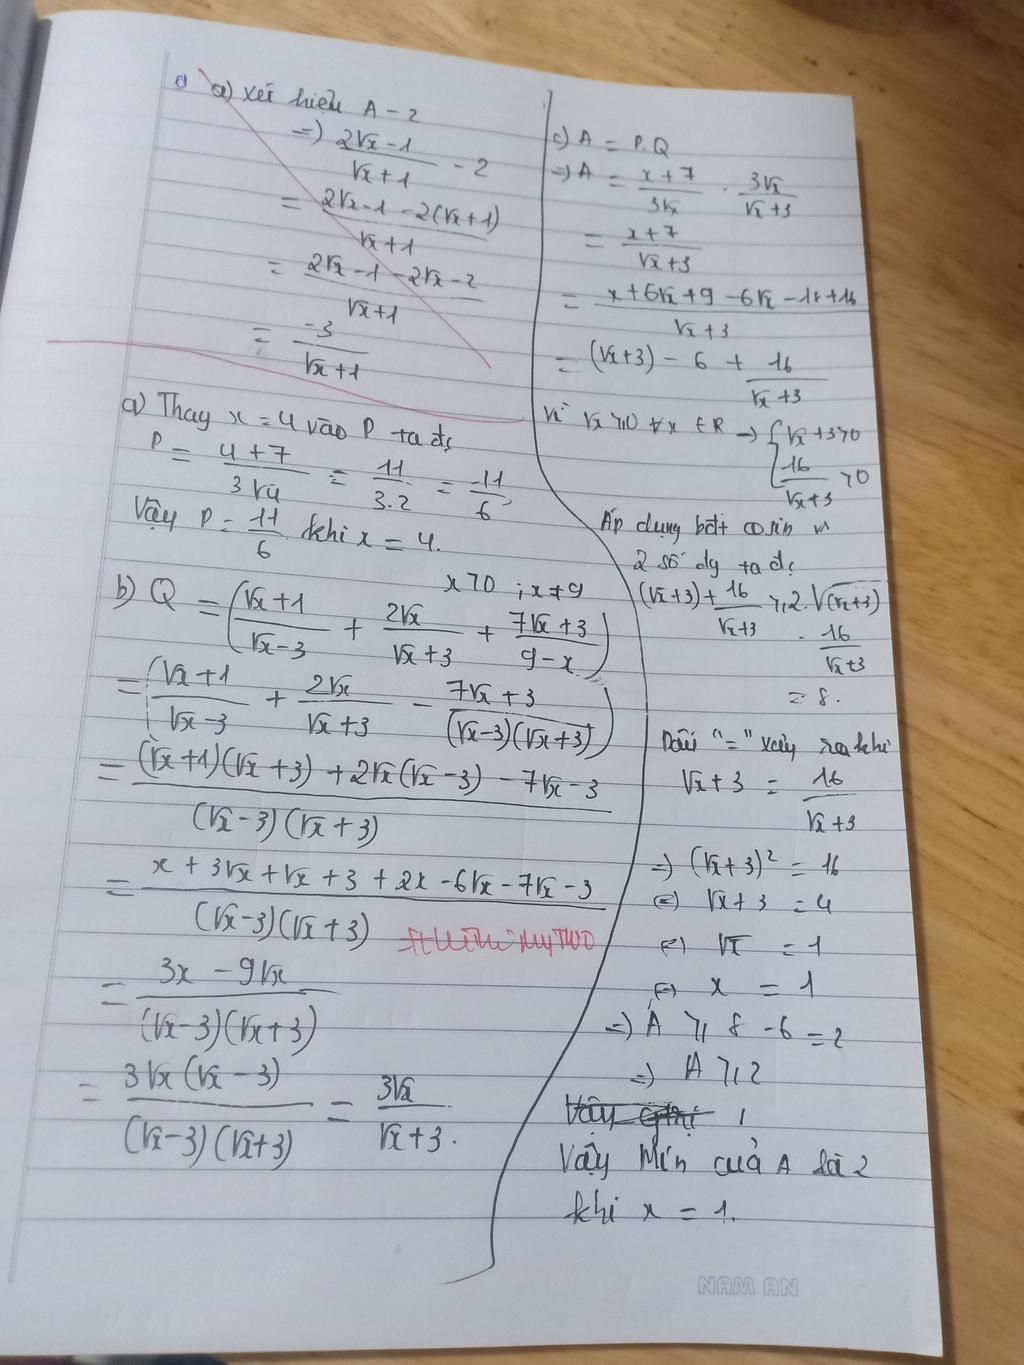 a) Xét hiệu A - 2
=) (2√x - 1)/(√x + 1) - 2
= (2√x - 1 - 2(√x + 1))/(√x + 1)
= (2√x - 1 - 2√x - 2)/(√x + 1)
= -3/(√x + 1)
a) Thay x = 4 vào P ta đc
P = (4 + 7)/(3√4) = 11/(3.2) = 11/6
Vậy P = 11/6 khi x = 4.
x > 0 ; x ≠ 9
b) Q = ((√x + 1)/(√x - 3) + 2√x/(√x + 3) + (7√x + 3)/(9 - x))
= ((√x + 1)/(√x - 3) + 2√x/(√x + 3) - (7√x + 3)/((√x - 3)(√x + 3)))
= ((√x + 1)(√x + 3) + 2√x(√x - 3) - 7√x - 3)/((√x - 3)(√x + 3))
= (x + 3√x + √x + 3 + 2x - 6√x - 7√x - 3)/((√x - 3)(√x + 3))
= (3x - 9√x)/((√x - 3)(√x + 3))
= 3√x(√x - 3)/((√x - 3)(√x + 3)) = 3√x/(√x + 3).
c) A = P.Q
=) A = (x + 7)/(3√x) . 3√x/(√x + 3)
= (x + 7)/(√x + 3)
= (x + 6√x + 9 - 6√x - 18 + 16)/(√x + 3)
= (√x + 3) - 6 + 16/(√x + 3)
Vì √x ≥ 0 ∀x ∈ R → { √x + 3 > 0
16/(√x + 3) > 0
Áp dụng bđt cosin vs
2 số dg ta đc
(√x + 3) + 16/(√x + 3) ≥ 2.√(√x + 3)
. 16/(√x + 3)
= 8.
Dấu "=" xảy ra khi
√x + 3 = 16/(√x + 3)
=) (√x + 3)² = 16
(=) √x + 3 = 4
(=) √x = 1
(=) x = 1
=) A ≥ 8 - 6 = 2
=) A ≥ 2
Vậy Min của A là 2
khi x = 1.
NAM AN